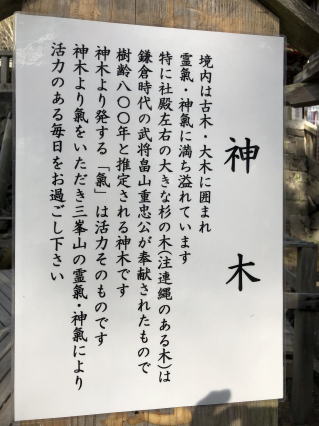 神木
境内は古木・大木に囲まれ
霊氣・神氣に満ち溢れています
特に社殿左右の大きな杉の木(注連縄のある木)は
鎌倉時代の武将畠山重忠公が奉献されたもので
樹齢八〇〇年と推定される神木です
神木より発する「氣」は活力そのものです
神木より氣をいただき三峯山の霊氣・神氣により
活力のある毎日をお過ごし下さい